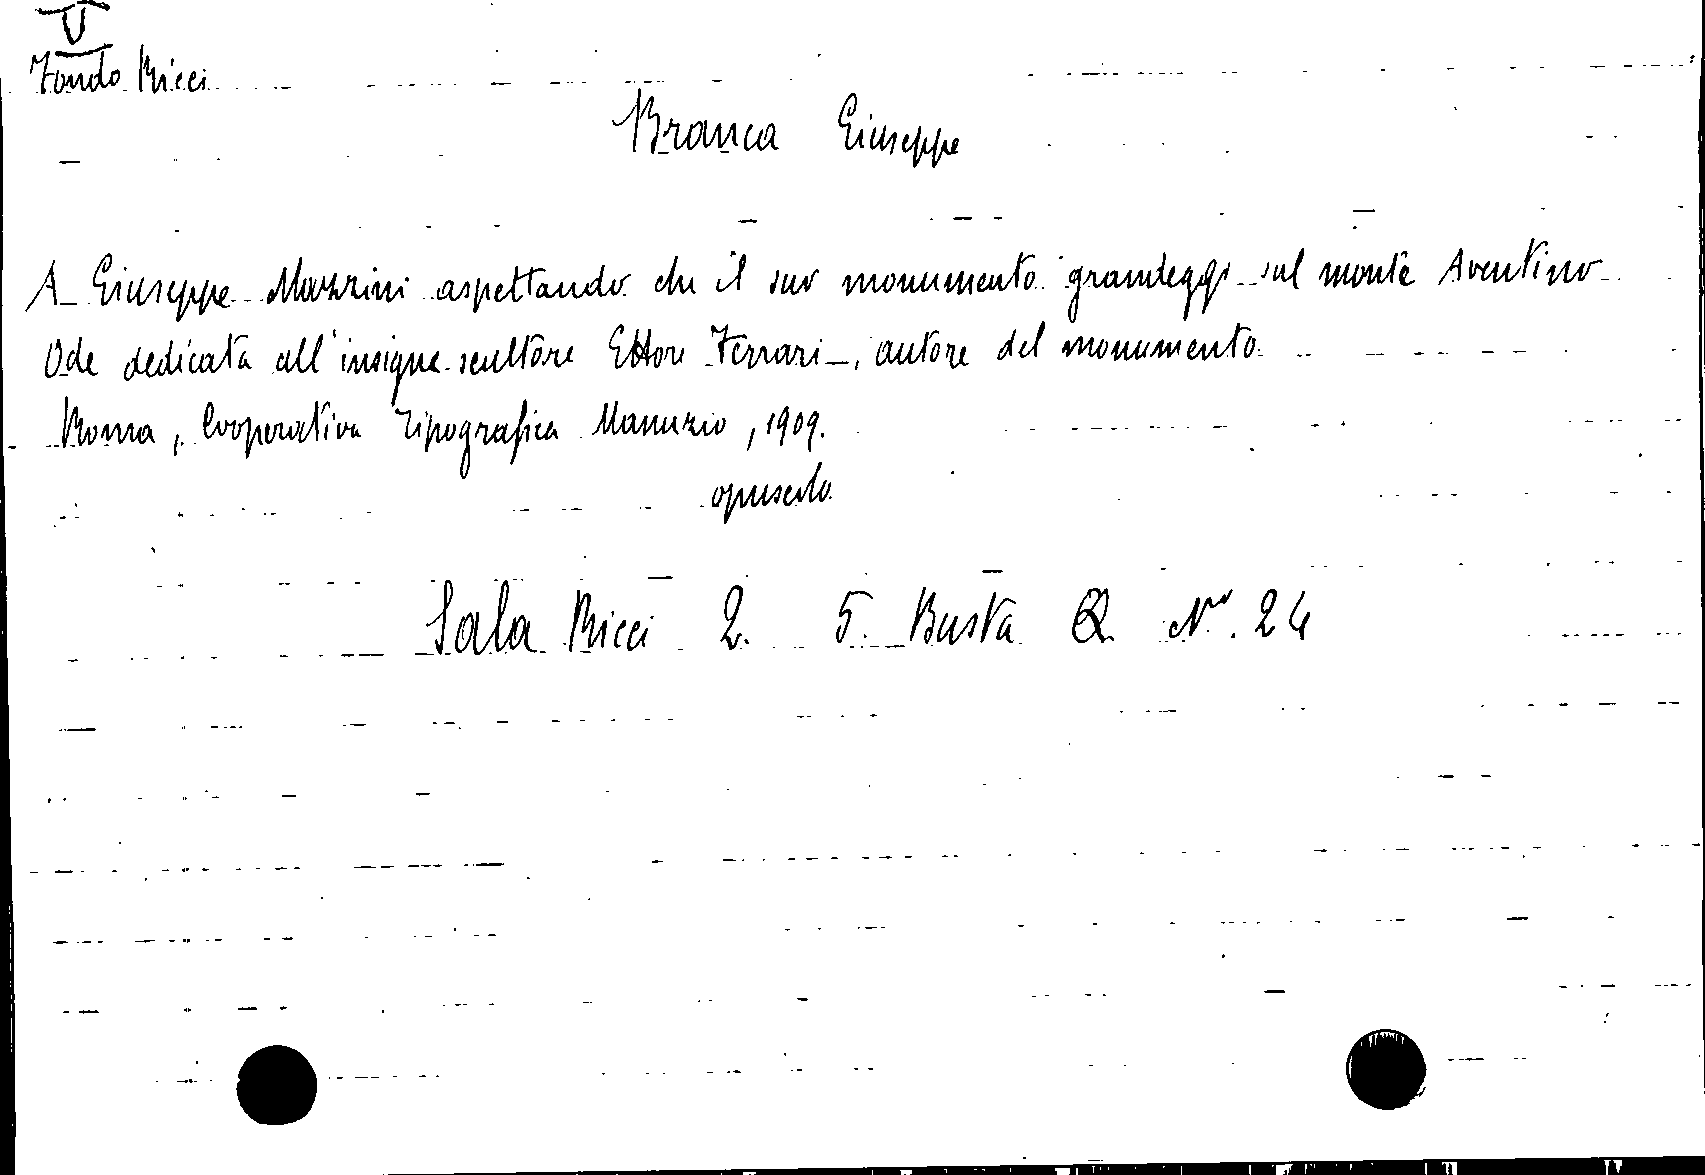 V
Fondo Ricci
Branca Giuseppe
A Giuseppe Mazzini aspettando che il suo monumento grandeggi sul monte Aventino
Ode dedicata all'insigne scultore Ettore Ferrari, autore del monumento
Roma, Cooperativa Tipografica Manuzio, 1909.
opuscolo
Sala Ricci 2. 5. Busta Q Nº. 24